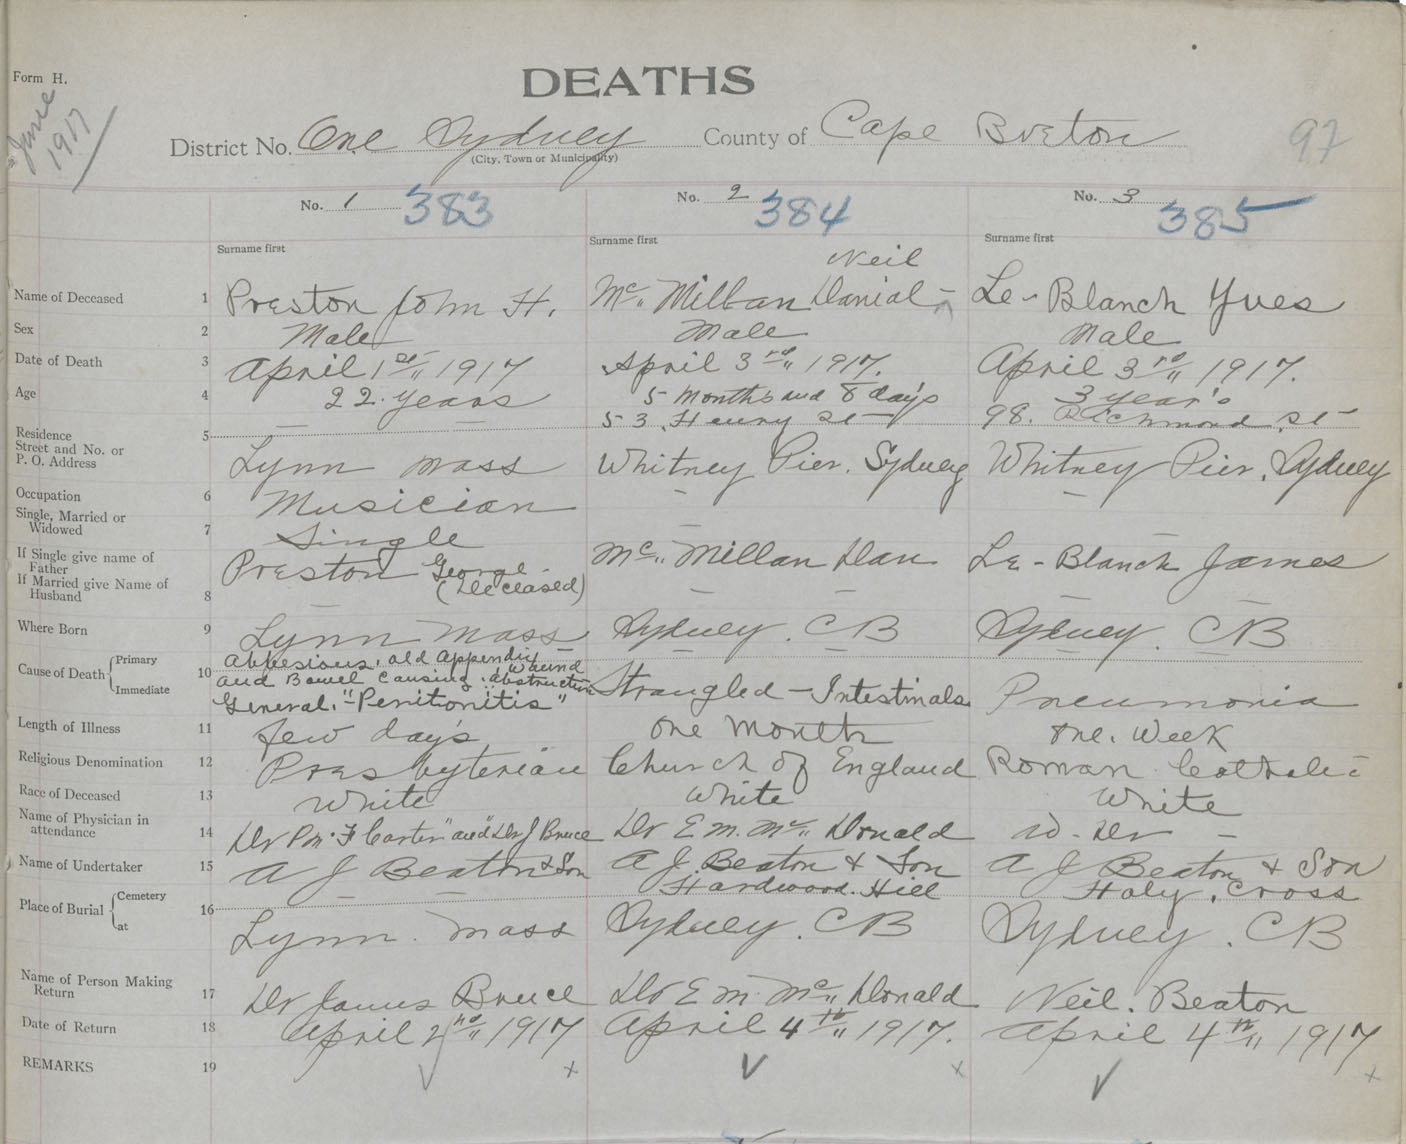 Form H.
June
1917
DEATHS
District No. One Sydney County of Cape Breton
(City, Town or Municipality)
97
No. 1 383 No. 2 384 No. 3 385
Surname first Surname first Surname first
Neil
Name of Deceased 1 Preston John H. Mc Millan Danial - Le - Blanch Yves
Sex 2 Male Male Male
Date of Death 3 April 1st 1917 April 3rd 1917. April 3rd 1917.
Age 4 22 years 5 Months and 8 day's 3 year's
53, Henry St 98. Richmond St
Residence
Street and No. or
P. O. Address 5 Lynn Mass Whitney Pier. Sydney Whitney Pier, Sydney
Occupation 6 Musician
Single, Married or
Widowed 7 Single
If Single give name of
Father
If Married give Name of
Husband 8 Preston George (Deceased) Mc Millan Dan Le - Blanch James
Where Born 9 Lynn Mass Sydney. CB Sydney. CB
Cause of Death Primary Immediate 10
Abbesions, old Appendix wound
and Bowel causing obstruction
General, "Penitionitis" Strangled - Intestinals Pneumonia
Length of Illness 11 few day's One Month One. Week
Religious Denomination 12 Presbyterian Church of England Roman Catholic
Race of Deceased 13 White White White
Name of Physician in
attendance 14 Dr F Carter" and "Dr J Bruce Dr E M. Mc Donald Dr -
Name of Undertaker 15 A J Beaton & Son A J. Beaton & Son A J Beaton & Son
Hardwood. Hill Holy. Cross
Place of Burial Cemetery at 16 Lynn. Mass Sydney. CB Sydney. CB
Name of Person Making
Return 17 Dr James Bruce Dr E M. Mc Donald Neil. Beaton
Date of Return 18 April 2nd 1917 April 4th 1917. April 4th 1917
REMARKS 19